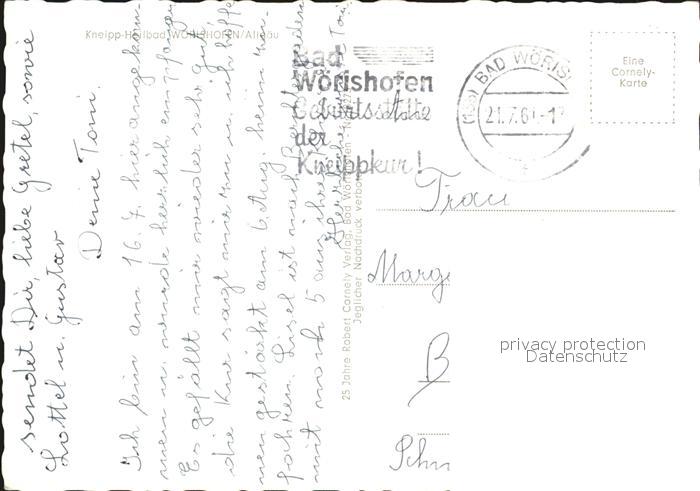 Kneipp-Heilbad WÖRISHOFEN/Allgäu
Bad
Wörishofen
Geburtsstätte
der
Kneippkur!
BAD WÖRIS
21.7.61-17
Eine
Cornely-
Karte
Frau
Marg
B
Schn
privacy protection
Datenschutz
25 Jahre Robert Cornely Verlag, Bad Wörishofen
Jeglicher Nachdruck verboten
Ich bin am 16. 7. hier angekom-
men u. wurde herzlich empfangen
Es gefällt mir wieder sehr gut
die Kur sagt mir zu u. ich hoffe
gestärkt am 6. Aug. heim zu-
fahren. Lisel ist nach
mit noch 5 aus ihrer
Herzliche
sendet Dir, liebe Gretel, sowie
Lottel u. Gustav
Deine Toni.